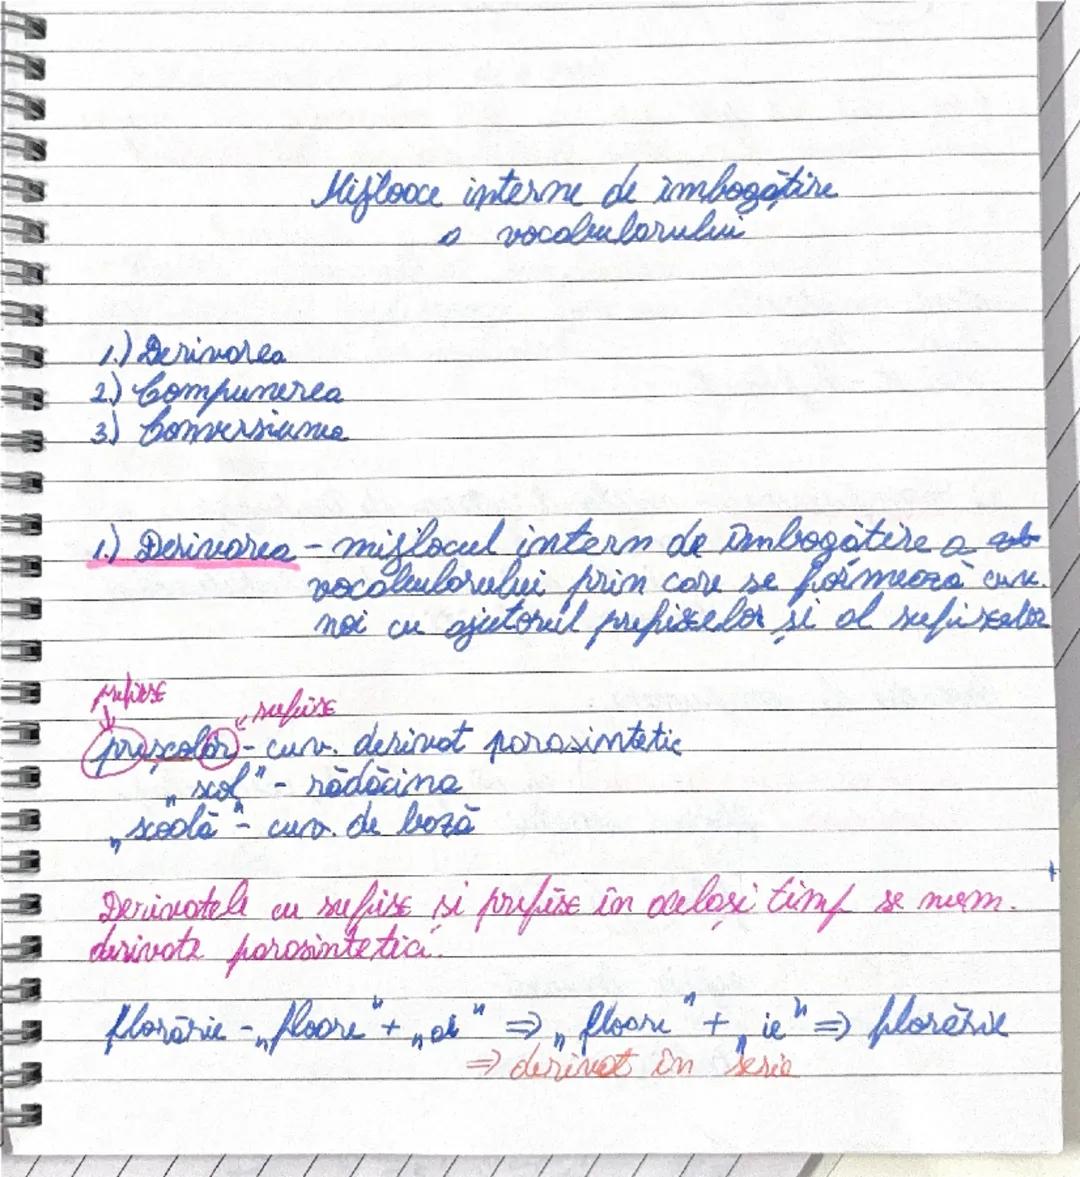 Mijloace interne de îmbogățire
a vocabularului
1.) Derivarea
2.) Compunerea
3) Conversiunea
1.) Derivarea - mijlocul intern de îmbogățire a
vocabularului prin care se formează cuv.
noi cu ajutorul prefixelor și al sufixelor
prefixe
sufixe
preșcolar - cuv. derivat parasintetic
„școl" - rădăcina
„școală" - cuv. de bază
Derivatele cu sufixe și prefixe în același timp se num.
derivate parasintetici.
florărie - „floare" + „ar" => „floare" + „ie" => florărie
=> derivat în serie